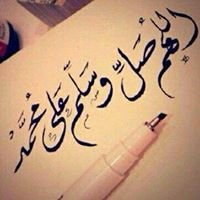 اللهم صَلِّ وسَلِّم على مُحمَّد